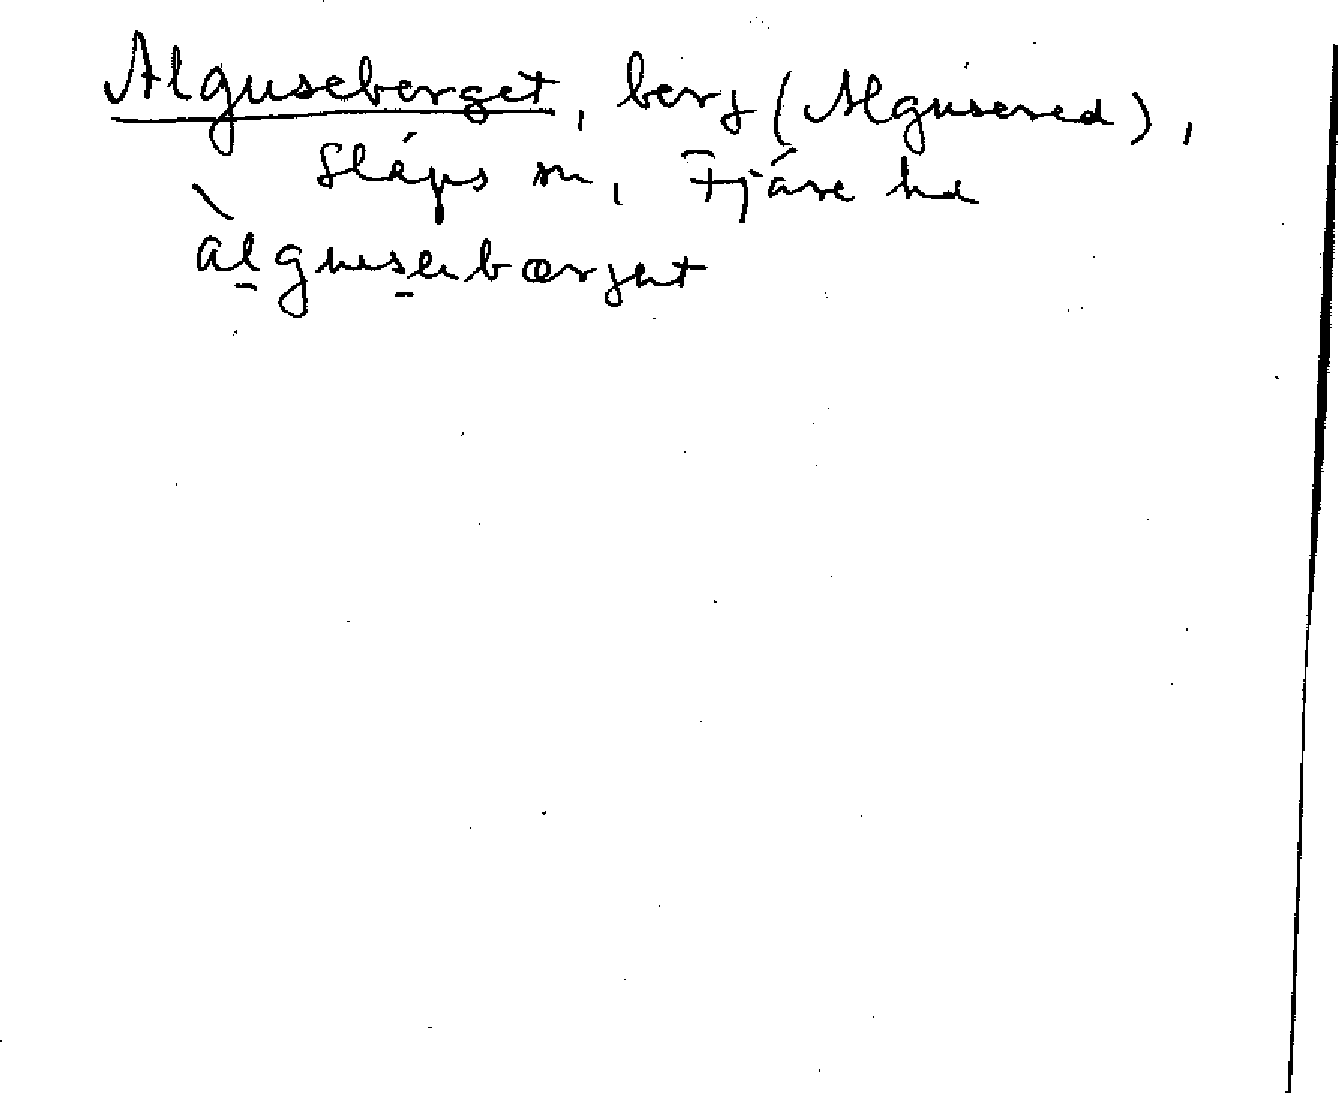 Alguseberget, berg (Algusered),
Släps sn, Fjäre hd
àlgusebærget